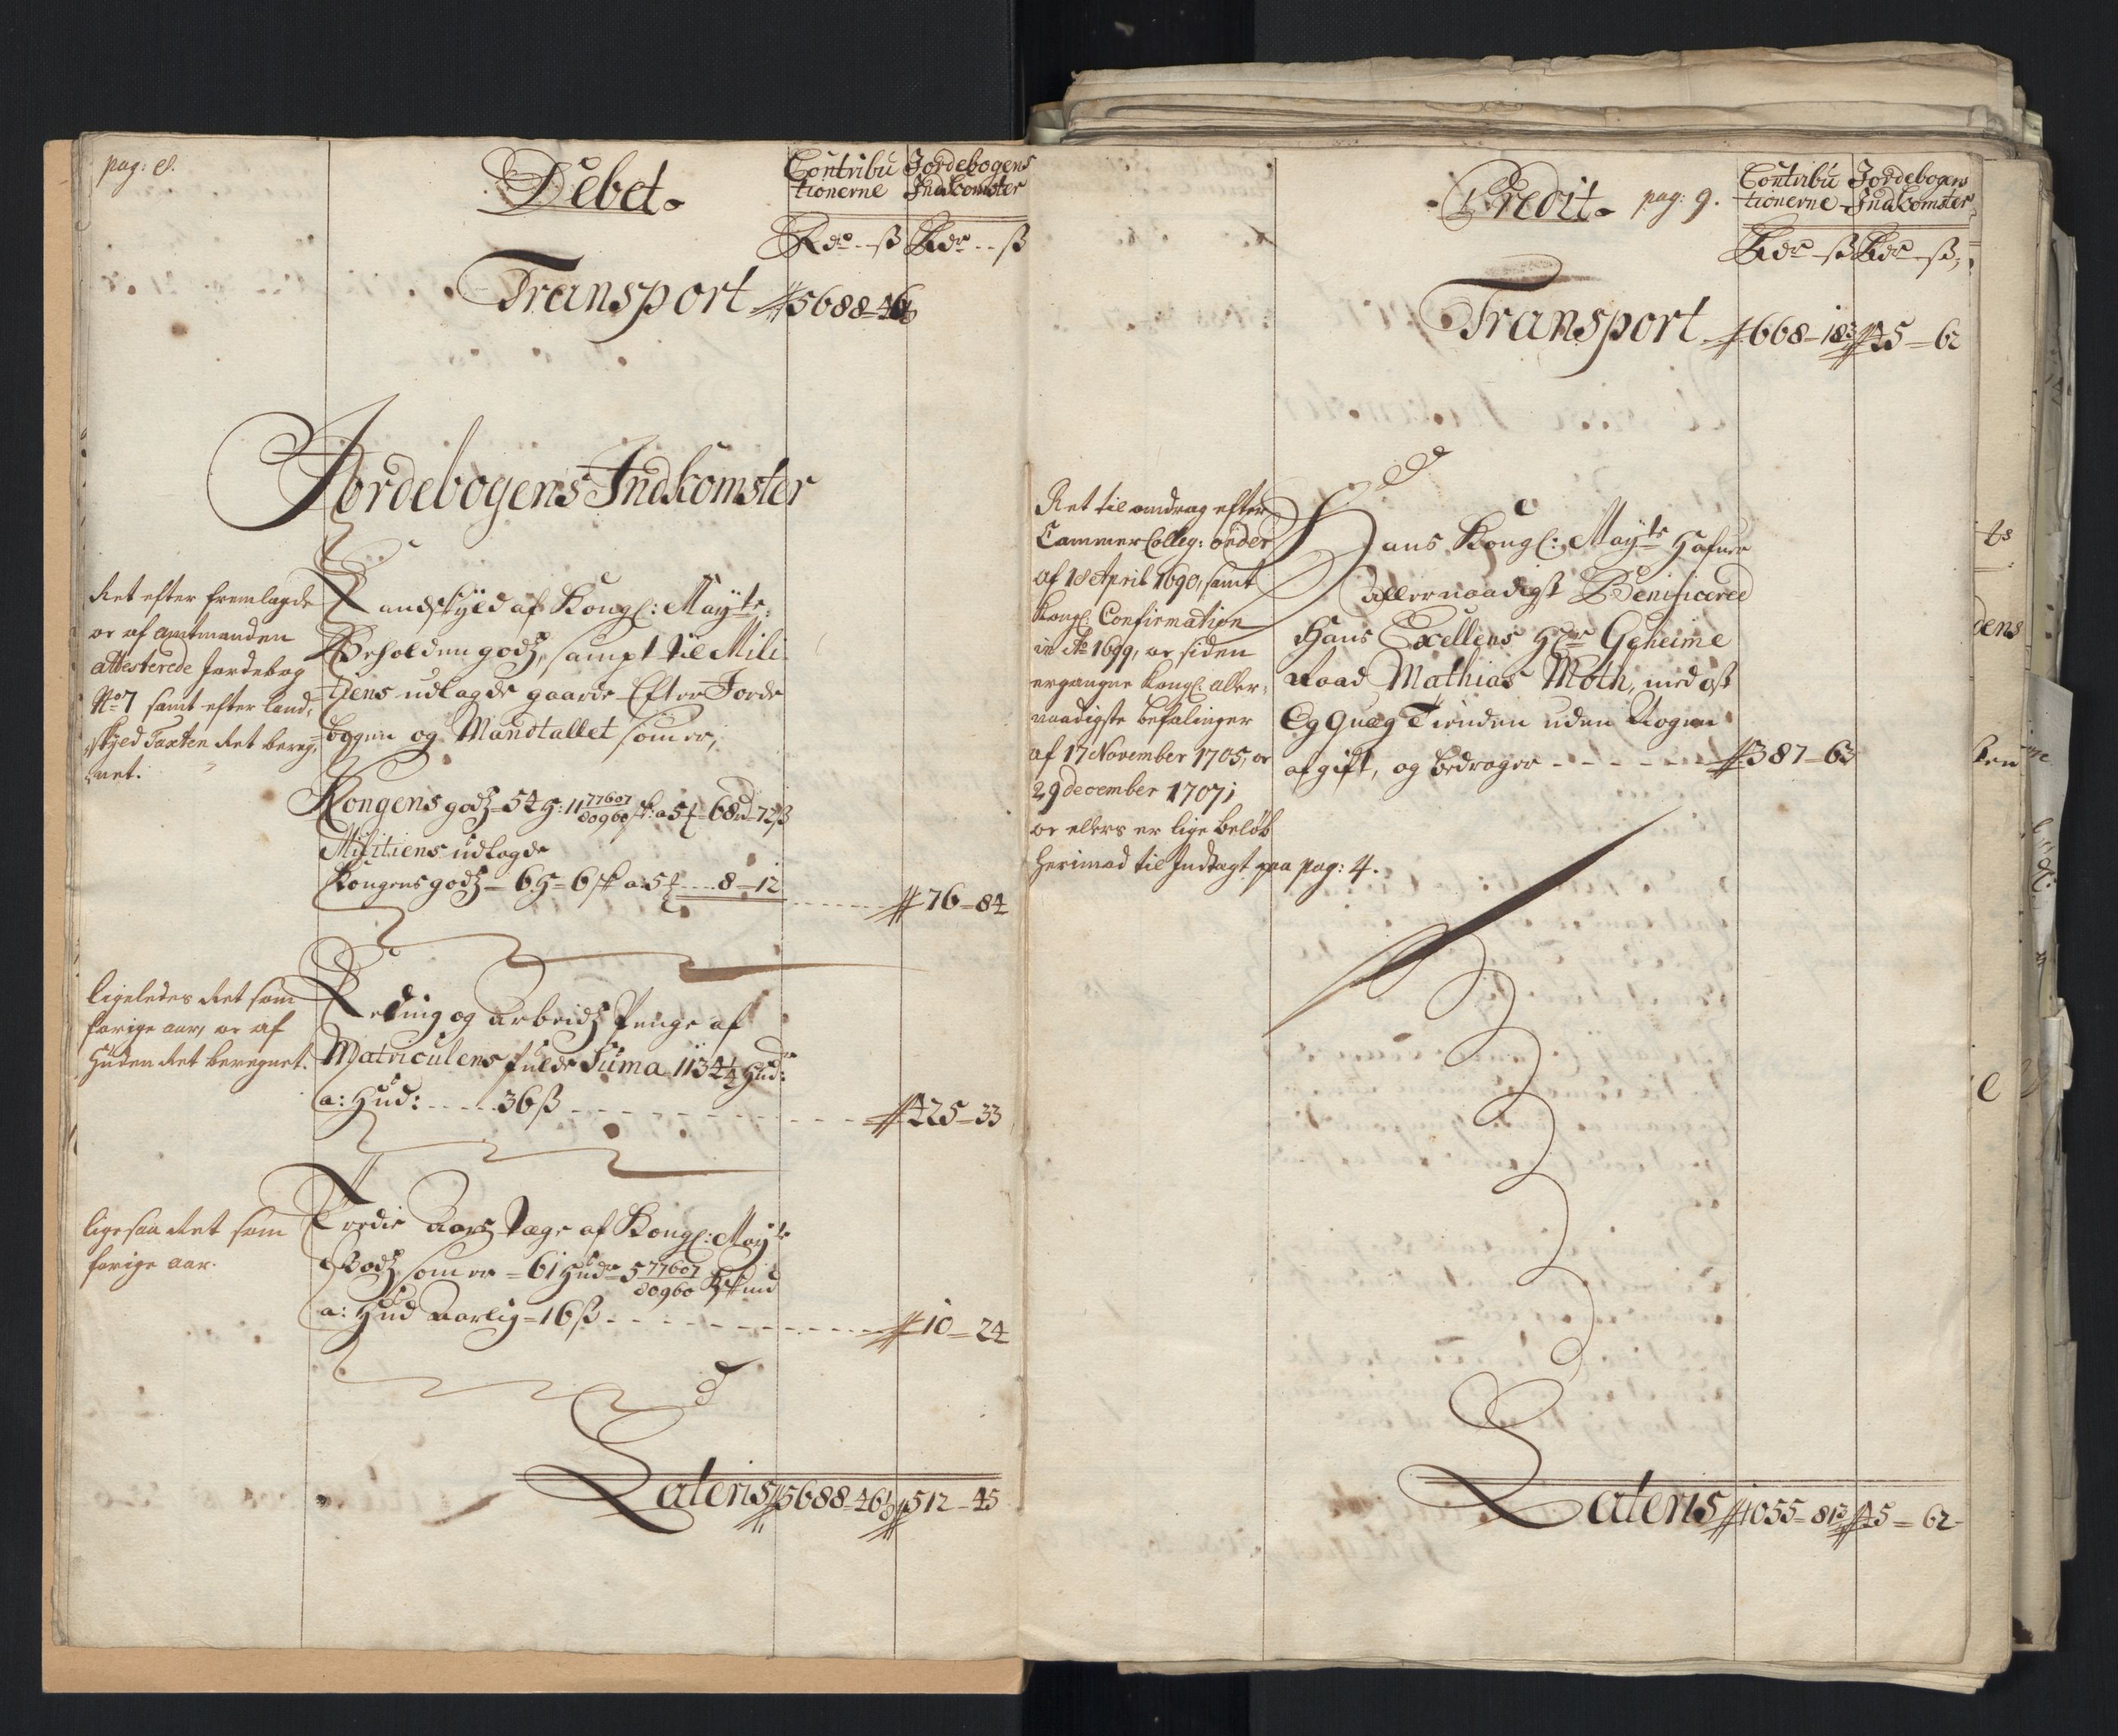 pag: 8.
Debet.
Contribu
tionerne
Jordebogens
Indkomster
Rdr - ß Rdr - - ß
Transport 5688 - 46
Jordebogens Indkomster
Ret efter fremlagde
oc af amtmanden
attesterede Jordebog
No 7 samt efter land,
skyld Taxten Ret bereg,
net.
Landskyld af Kongl: Mayts:
Beholdengodz, sampt til Mili
tiens udlagde gaarde Efter Jorde
bogen og Mandtallet som er,
Kongens godz - 54 H: 11 77607/80960 sk: a 5 - 68 rd - 72 ß
Militiens udlagde
Kongens godz - 6 H = 6 sk a: 5 - - - 8 - 12
76 - 84
ligeledes Ret som
forige aar, oc af
Huden Ret beregnet.
Leding og arbeidz Penge af
Matriculens fulde Suma 1134 1/4 Hudr:
a: Hud: - - - - 36 ß - - - - 425 - 33
ligesaa Ret som
forige aar.
Tredie Aars Tage af Kongl: Mayts
Godz som er = 61 Hudr 5 77607/80960 skind
a: Hud Aarlig = 16 ß - - - - 10 - 24
Lateris 5688 - 46 512 - 45
Credit. pag: 9.
Contribu
tionerne
Jordebogens
Indkomster
Rdr - ß Rdr - ß
Transport 668 - 18 45 - 62
Ret til omdrag efter
Cammer Colleg: order
af 18 April 1690, samt
Kongl: Confirmation
in Ao 1699, oc siden
ergangne Kongl. aller,
naadigste befalinger
af 17 November 1705, oc
29 december 1707;
oc ellers er lige beløb
herimod til Indtægt paa pag: 4.
Hans Kongl: Mayts hafuer
allernaadigst Benificered
Hans Excellens Hr Geheime
Raad Mathias Moth, med ost
Og Quæg Tienden uden Nogen
afgift, og bedrager - - - - - 387 - 63
Lateris 1055 - 81 45 - 62